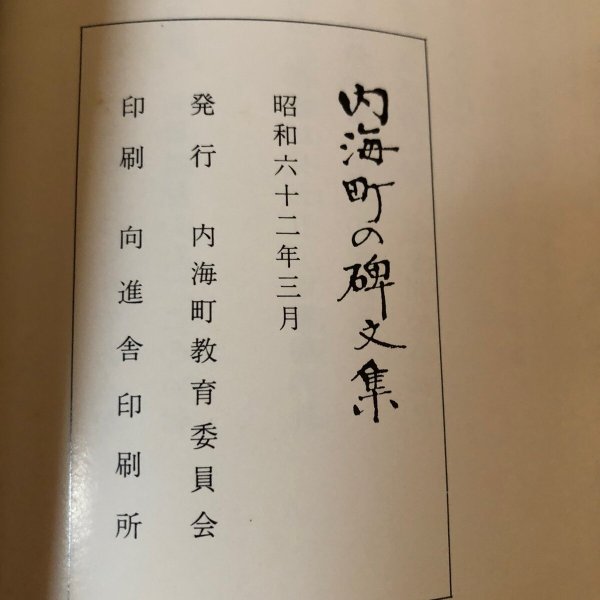 内海町の碑文集
昭和六十二年三月
発行 内海町教育委員会
印刷 向進舎印刷所